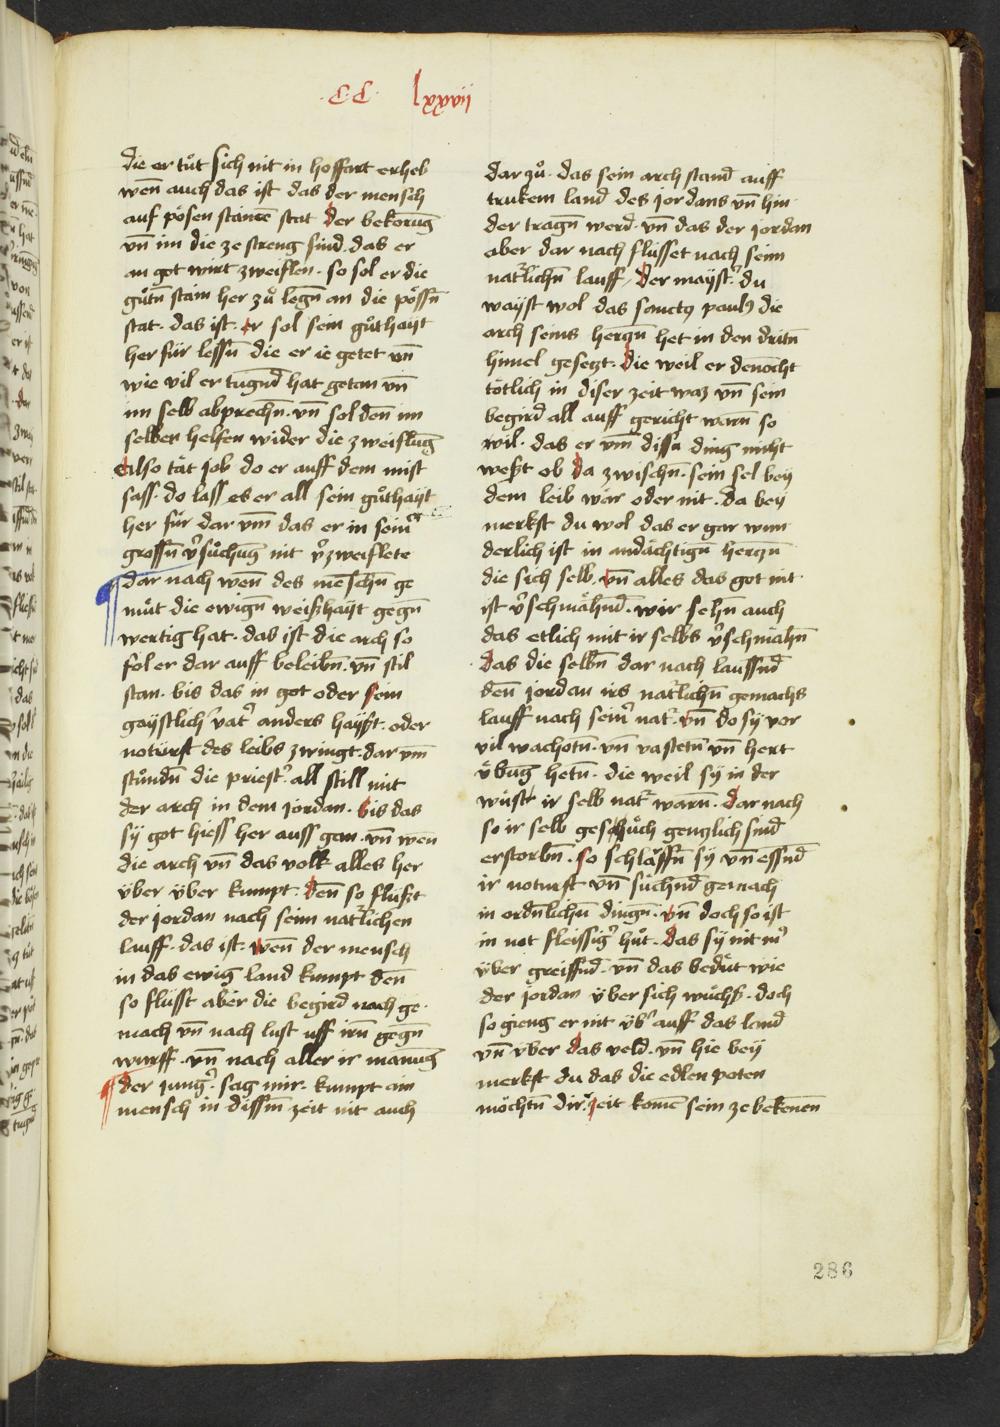 ·C·C· lxxvii
die er tůt sich nit in hoffart erheb
wen̄ auch das ist das der mensch
auf pösen stainē stat Der bekorūg
vn̄ im die ze streng sind. das er
an got wirt zweiflen. so sol er die
gůtn̄ stain her zů legn̄ an die pössn̄
stat. das ist. er sol sein gůthayt
her für lessn̄ die er ie getet vn̄
wie vil er tugn̄d hat getan vn̄
im selb abprechn̄. vn̄ sol den̄ im
selben helfen wider die zweiflūg
Also tät job do er auff dem mist
sass. do lass es er all sein gůthayt
her für dar vm̄ das er in sein'
grossn̄ v'sůchūg nit v'zweiflete
Dar nach wen̄ des mēschn̄ ge
müt die ewign̄ weißhayt gegn̄
wertig hat. das ist die arch so
sol er dar auff beleibn̄. vn̄ stil
stan. bis das in got oder sein
gaystlich' vat' anders hayßt. oder
noturft des leibs zwingt. dar vm̄
stůndn̄ die priest' all still mit
der arch in dem jordan. bis das
sy got hiess her auss gan. vn̄ wen̄
die arch vn̄ das volk alles her
über über kumpt. Den̄ so flüßt
der jordan nach seim nat'lichen
lauff. das ist. wen̄ der mensch
in das ewig land kumpt den̄
so flüsst aber die begird nach ge
mach vn̄ nach lust uff irn̄ gegn̄
wurff. vn̄ nach aller ir manūg
Der jung'. sag mir. kumpt ain
mensch in dissm̄ zeit nit auch
dar zů. das sein arch stand auff
trukem land des jordans vn̄ hin
der tragn̄ werd. vn̄ das der jordan
aber dar nach flüsset nach seim
nat'lichn̄ lauff. Der mayst'. du
wayst wol das sanctus paulus die
arch seins herczn̄ het in den dritn̄
himel geseczt. Die weil er denocht
tötlich in diser zeit waz vn̄ sein
begird all auff gericht warn̄ so
vil. das er vm̄ dissu ding nicht
weßt ob da zwischn̄. sein sel bey
dem leib wär oder nit. da bey
merkst du wol das er gar wun
derlich ist in andächtign̄ herczn̄
die sich selb. vn̄ alles das got nit
ist v'schmähnd. wir sehn̄ auch
das etlich mit ir selbs v'schmähn̄
Das die selbn̄ dar nach laussnd
den̄ jordan irs nat'lichn̄ gemachs
lauff nach sein' nat'. vn̄ do sy vor
vil wachotn̄. vn̄ vastetn̄ vn̄ hert
übūg hetn̄. die weil sy in der
wüst ir selb nat' warn̄. Dar nach
so ir selb gesůch genczlich sind
erstorbn̄. so schlaffn̄ sy vn̄ essnd
ir noturft vn̄ sůchnd gemach
in ordn̄lichn̄ dingn̄. vn̄ doch so ist
in not fleissig' hůt. Das sy nit
über greiffnd. vn̄ das bedüt wie
der jordan über sich wůchß. doch
so gieng er nit üb' auff das land
vn̄ über das veld. vn̄ hie bey
merkst du das die edlen poten
möchtn̄ dir. zeit komē sein ze bekenen
286